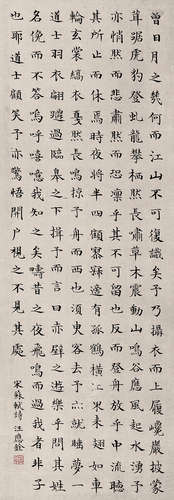 曾日月之幾何而江山不可復識矣予乃攝衣而上履巉巖披蒙
茸踞虎豹登虬龍攀栖然長嘯草木震動山鳴谷應風起水涌予
亦悄然而悲肅然而恐凜乎其不可留也反而登舟放乎中流聽
其所止而休焉時夜將半四顧寂寥適有孤鶴橫江東來翅如車
輪玄裳縞衣戛然長鳴掠予舟而西也須臾客去予亦就睡夢一
道士羽衣翩躚過臨皋之下揖予而言曰赤壁之遊樂乎問其姓
名俛而不答嗚呼噫嘻我知之矣疇昔之夜飛鳴而過我者非子
也耶道士顧笑予亦驚悟開戶視之不見其處
宋蘇軾詩 汪應銓